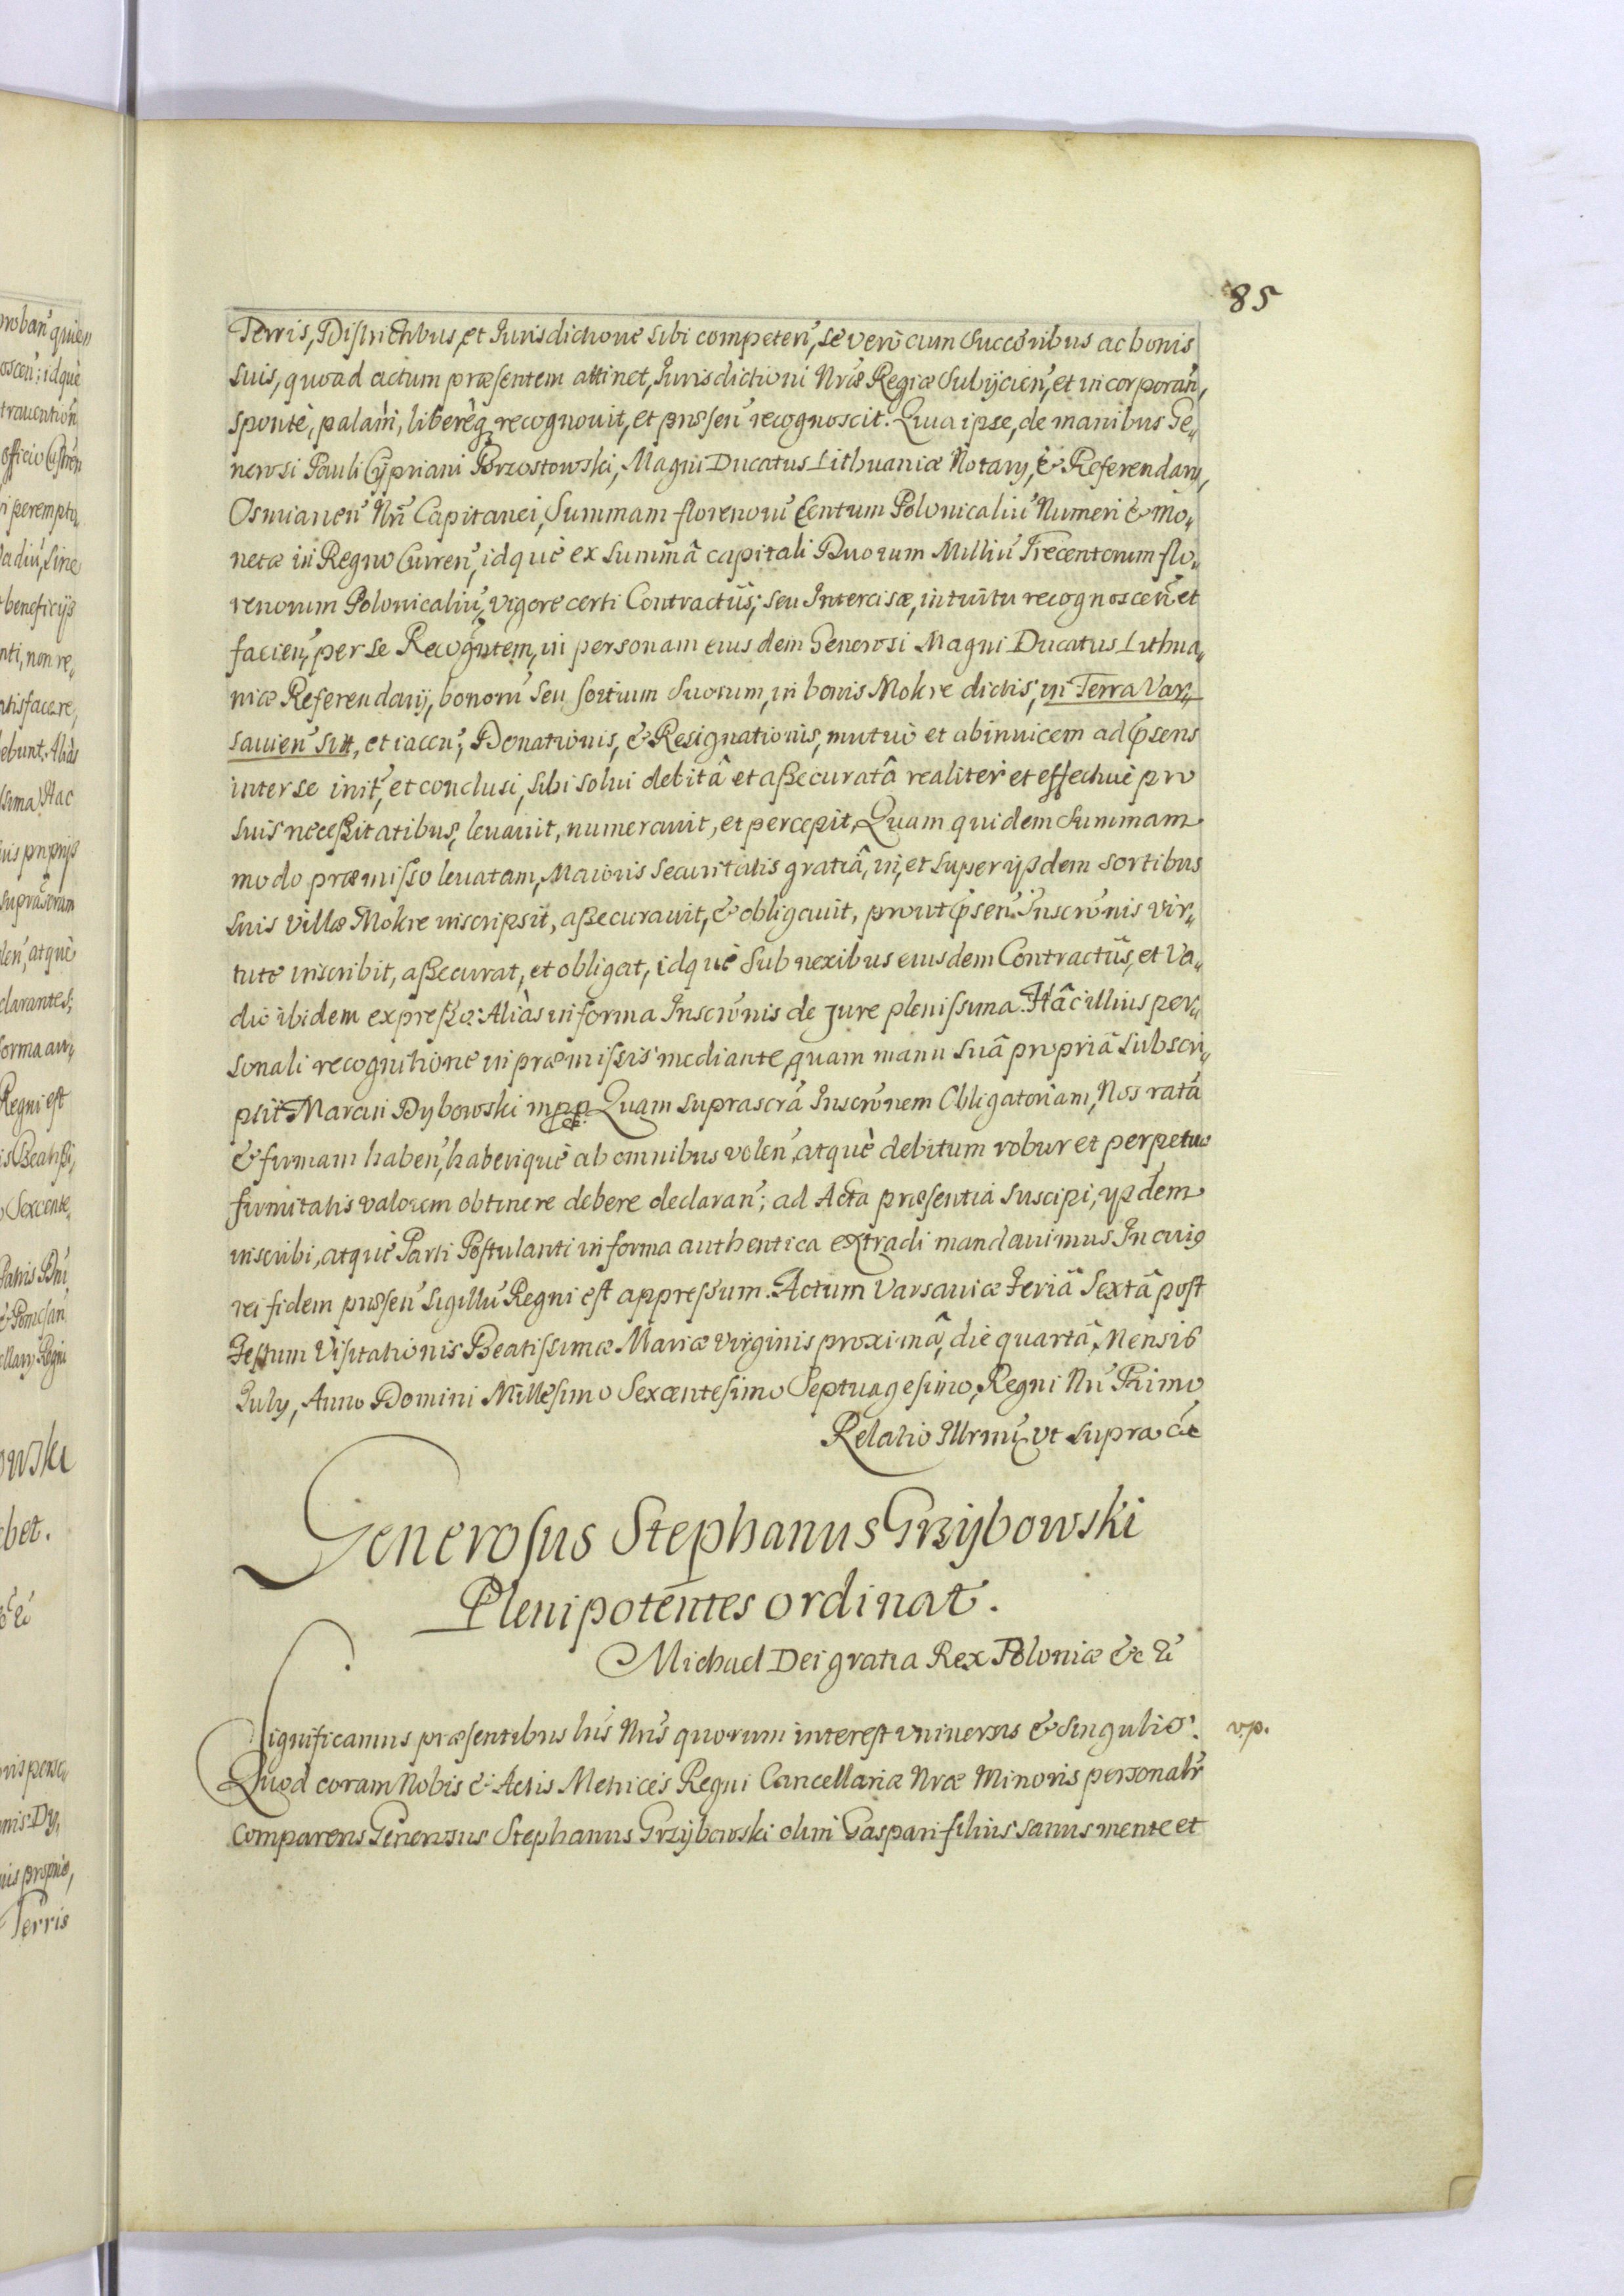 85
Terris, Districtibus, et Jurisdictione sibi competen̄, se verò cum Successoribus ac bonis
suis, quoad actum præsentem attinet, Jurisdictioni Nr̃æ Regiæ Subijcien̄, et incorporan̄,
spontè, palàm, liberèq̨ recognouit, et præsen̄ recognoscit. Quia ipse, de manibus Ge„
nerosi Pauli Cypriani Brzostowski, Magni Ducatus Lithuaniæ Notarij, & Referendarij,
Osmianen̄ Nr̃i Capitanei, Summam florenorū Centum Polonicaliū Numeri & mo„
netæ in Regno Curren̄, idquè ex summâ capitali Duorum Milliū Trecentorum flo„
renorum Polonicaliū, vigore certi Contractûs, seu Intercisæ, intuitu recognoscen̄ et
facien̄, per se Recogñtem, in personam eiusdem Generosi Magni Ducatus Lithua„
niæ Referendarij, bonorū seu sortium Suorum, in bonis Mokre dictis, in Terra Var„
sauien̄ sitt, et iacen̄, Donationis, & Resignationis, mutuò et abinuicem ad p̃sens
inter se init̃, et conclusi, sibi solui debitâ et assecuratâ realiter et effectiuè pro
suis necessitatibus, leuauit, numerauit, et percepit, Quam quidem Summam
modo præmisso leuatam, Maioris securitatis gratiâ, in, et super ijsdem sortibus
suis villæ Mokre inscripsit, assecurauit, & obligauit, prout p̃sen̄ Inscr̃onis vir„
tute inscribit, assecurat, et obligat, idquè Sub nexibus eiusdem Contractûs, et Va„
dio ibidem expresso: Aliàs in forma Inscr̃onis de Jure plenissima. Hâc illius per„
sonali recognitione in præmissis mediante, quam manu suâ propriâ subscri„
psit Marcin Dybowski mpp. Quam suprascr̃a Inscr̃onem Obligatoriam, Nos ratã
& firmam haben̄, haberiquè ab omnibus volen̄, atquè debitum robur et perpetuæ
firmitatis valorem obtinere debere declaran̄; ad Acta præsentia suscipi, ijsdem
inscribi, atquè Parti Postulanti in forma authentica extradi mandauimus In cuius
rei fidem præsen̄ Sigillū Regni est appressum. Actum Varsauiæ Feriâ Sextâ post
Festum Visitationis Beatissimæ Mariæ Virginis proximâ, die quartâ Mensis
July, Anno Domini Millesimo Sexcentesimo Septuagesimo, Regni Nr̃i Primo
Relatio Illrmi ut supra &c
Generosus Stephanus Grzybowski
Plenipotentes ordinat.
Michael Dei gratia Rex Poloniæ &c &c
Significamus præsentibus lr̃is Nr̃is quorum interest vniuersis & singulis.
v.p.
Quod coram Nobis & Actis Metrices Regni Cancellariæ Nr̃æ Minoris personalr̃
Comparens Generosus Stephanus Grzybowski olim Gaspari filius sanus mente et